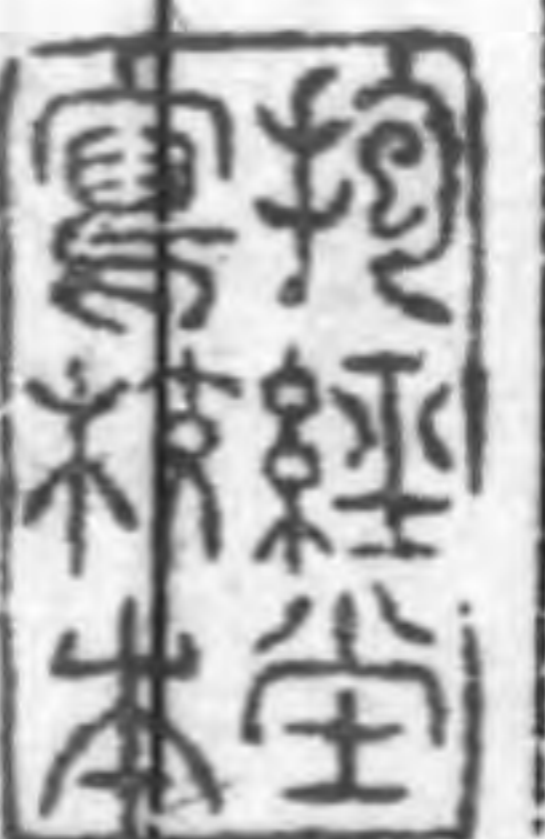 抱經堂
寫校本